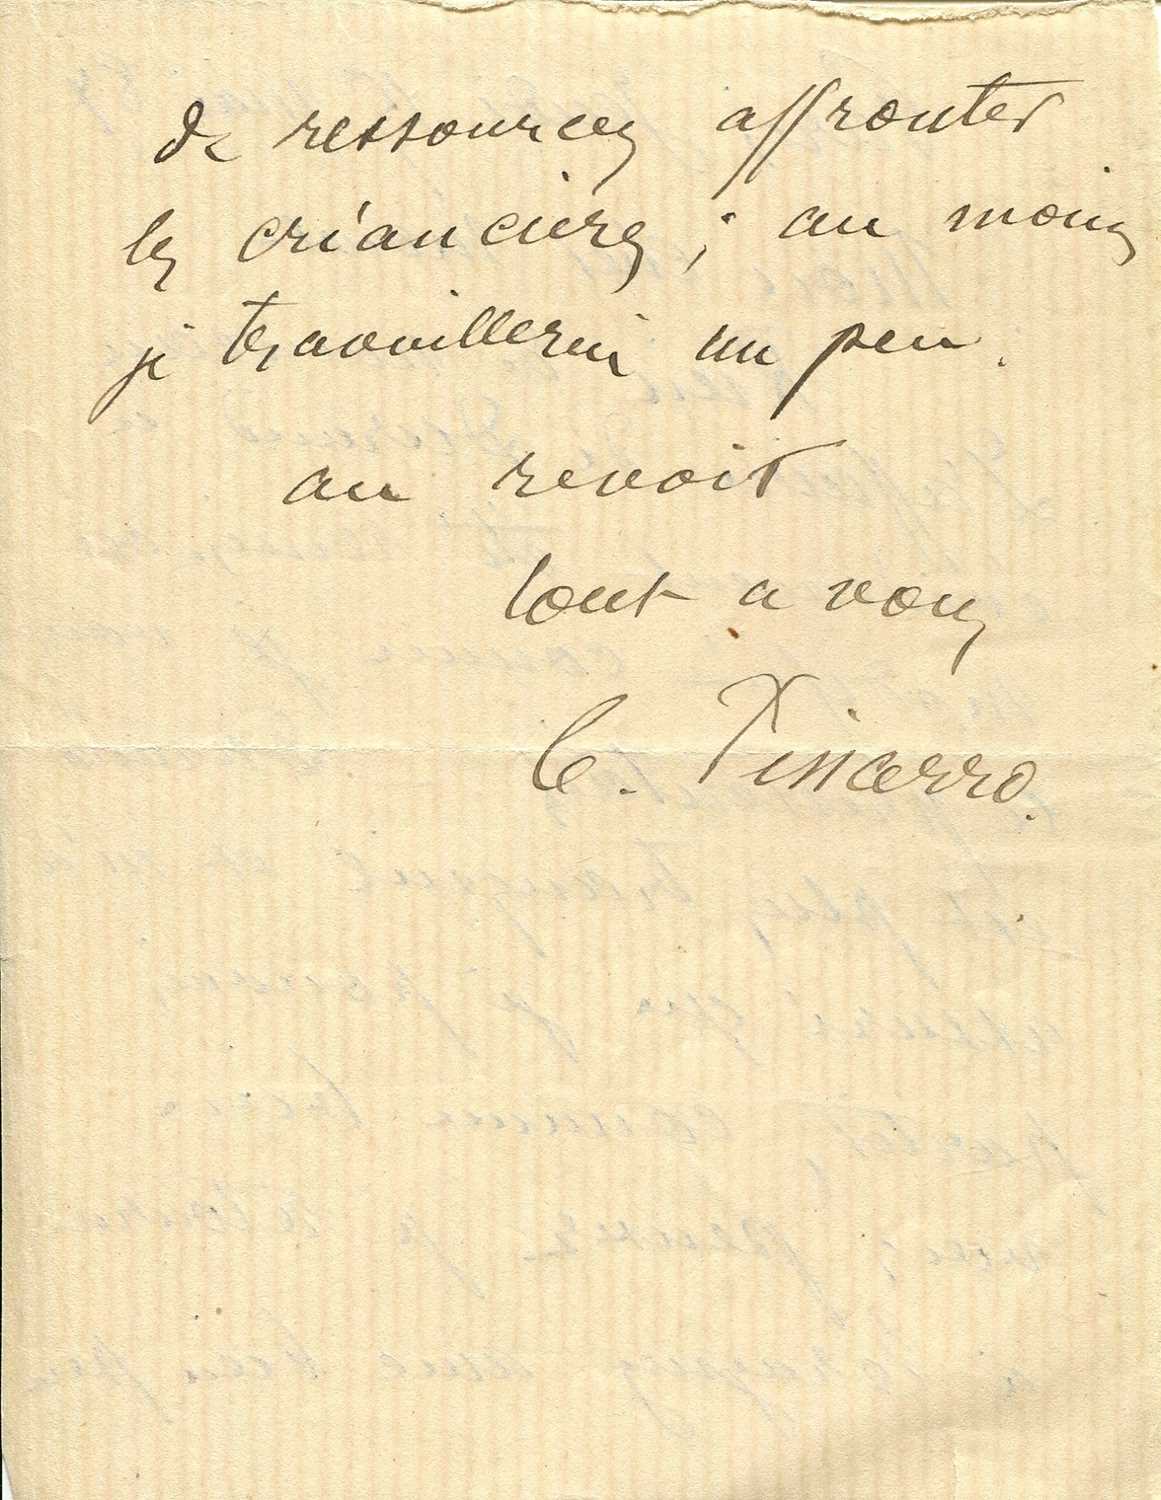 de ressources affronter
les créanciers ; au moins
je travaillerai un peu.
au revoir
tout a vous
C. Pissarro.